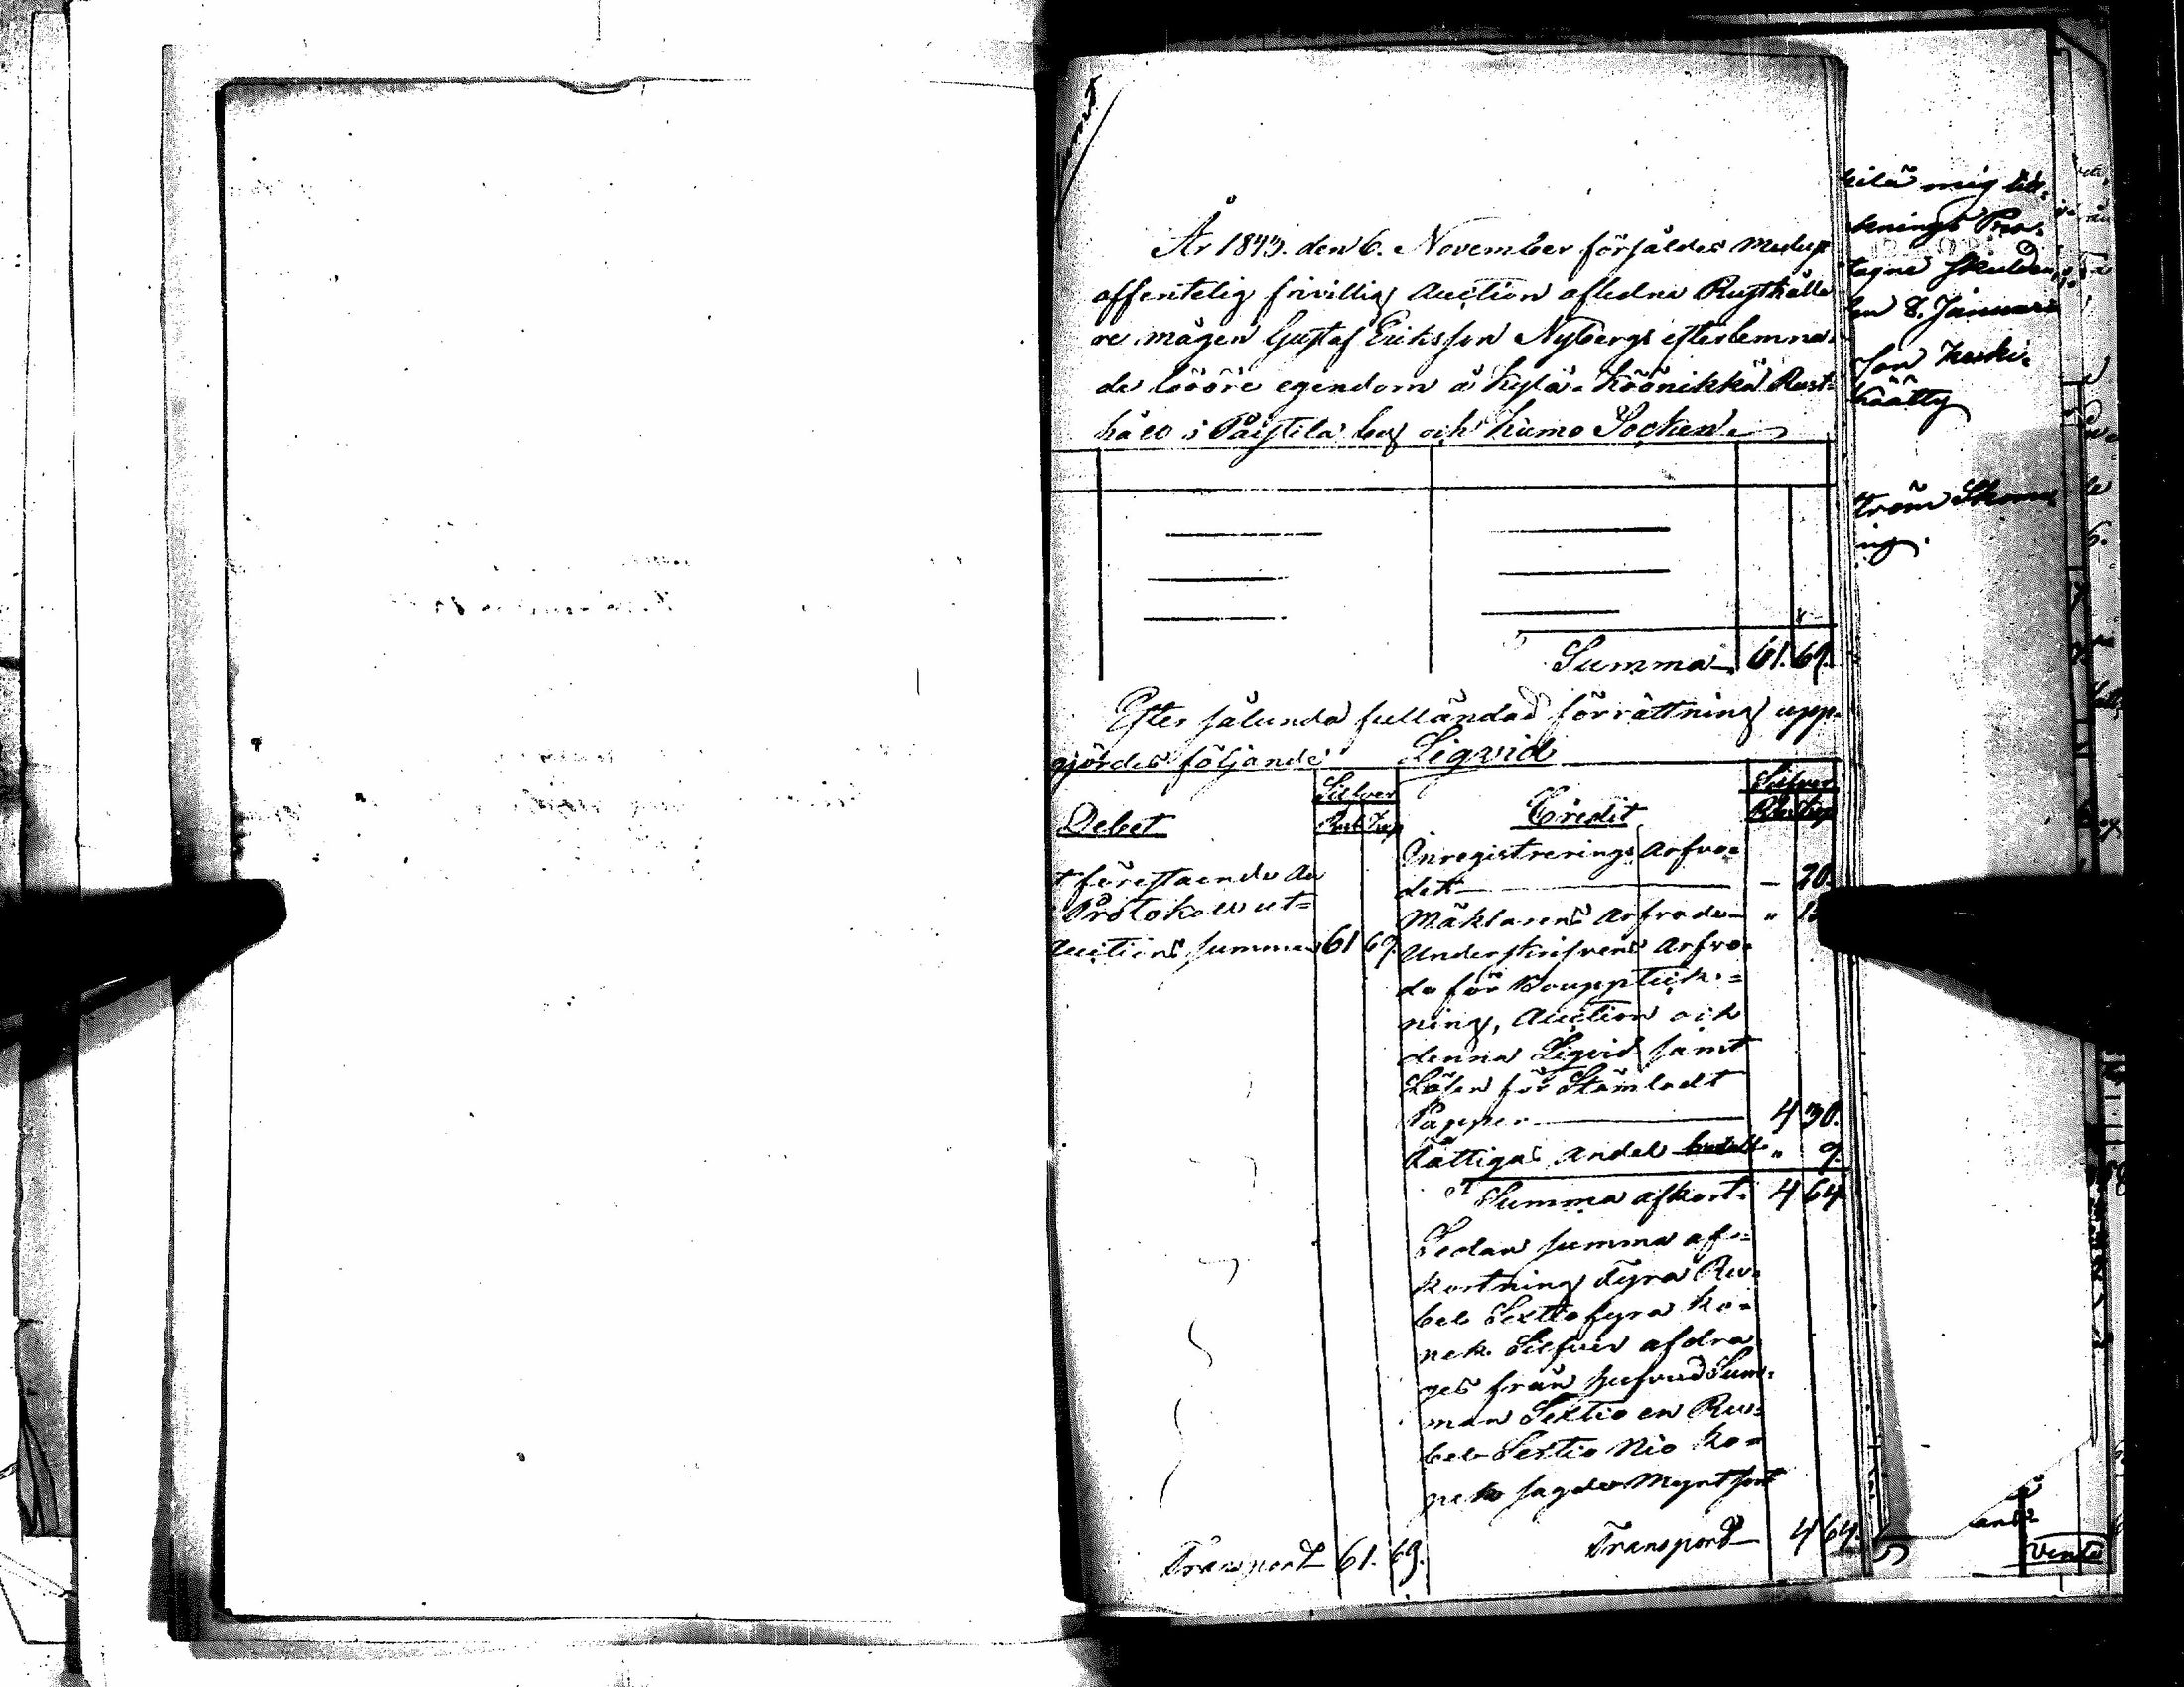 År 1843. den 6. November försåldes medelst
offentelig frivillig Auction aflidne Rusthålla
re mågen Gustaf Eriksson Nybergs efterlemna-
de lösöre egendom å Kylä-Köönikkä Rust=
håll i Paistila by och Kumo Socken.
Summa 61. 69.
Efter sålunda fulländad förrättning upp-
gjordes följande Liqvid
Debet
Silfver
Rub. Kop
t förestaende Au
Protokoll ut=
Auctions summa 61 69.
Credit
Silfver
Rub. Kop
Inregistrerings Arfvo=
det — 20.
Mäklarens Arfvode "
Underskrifvens Arfvo=
de för Bouppteck=
ning, Auction och
denna Liqvid samt
Lösen för Stämladt
Papper 4 30.
Fattigas Andel " 9.
Summa afkort. 4 64
Sedan summa af=
kortning Fyra Ru=
bel Sextiofyra Ko=
pek Silfver afdra
ges från hufvud Sum=
man Sextio en Ru=
bel Sextio Nio Ko=
pek sagde Myntsort
Transport 61. 69.
Transport 4 64.
kilä mig till
knings Pro=
tagne skulden
en 8. Januari
son Keski=
Häätty
tröm
ing.